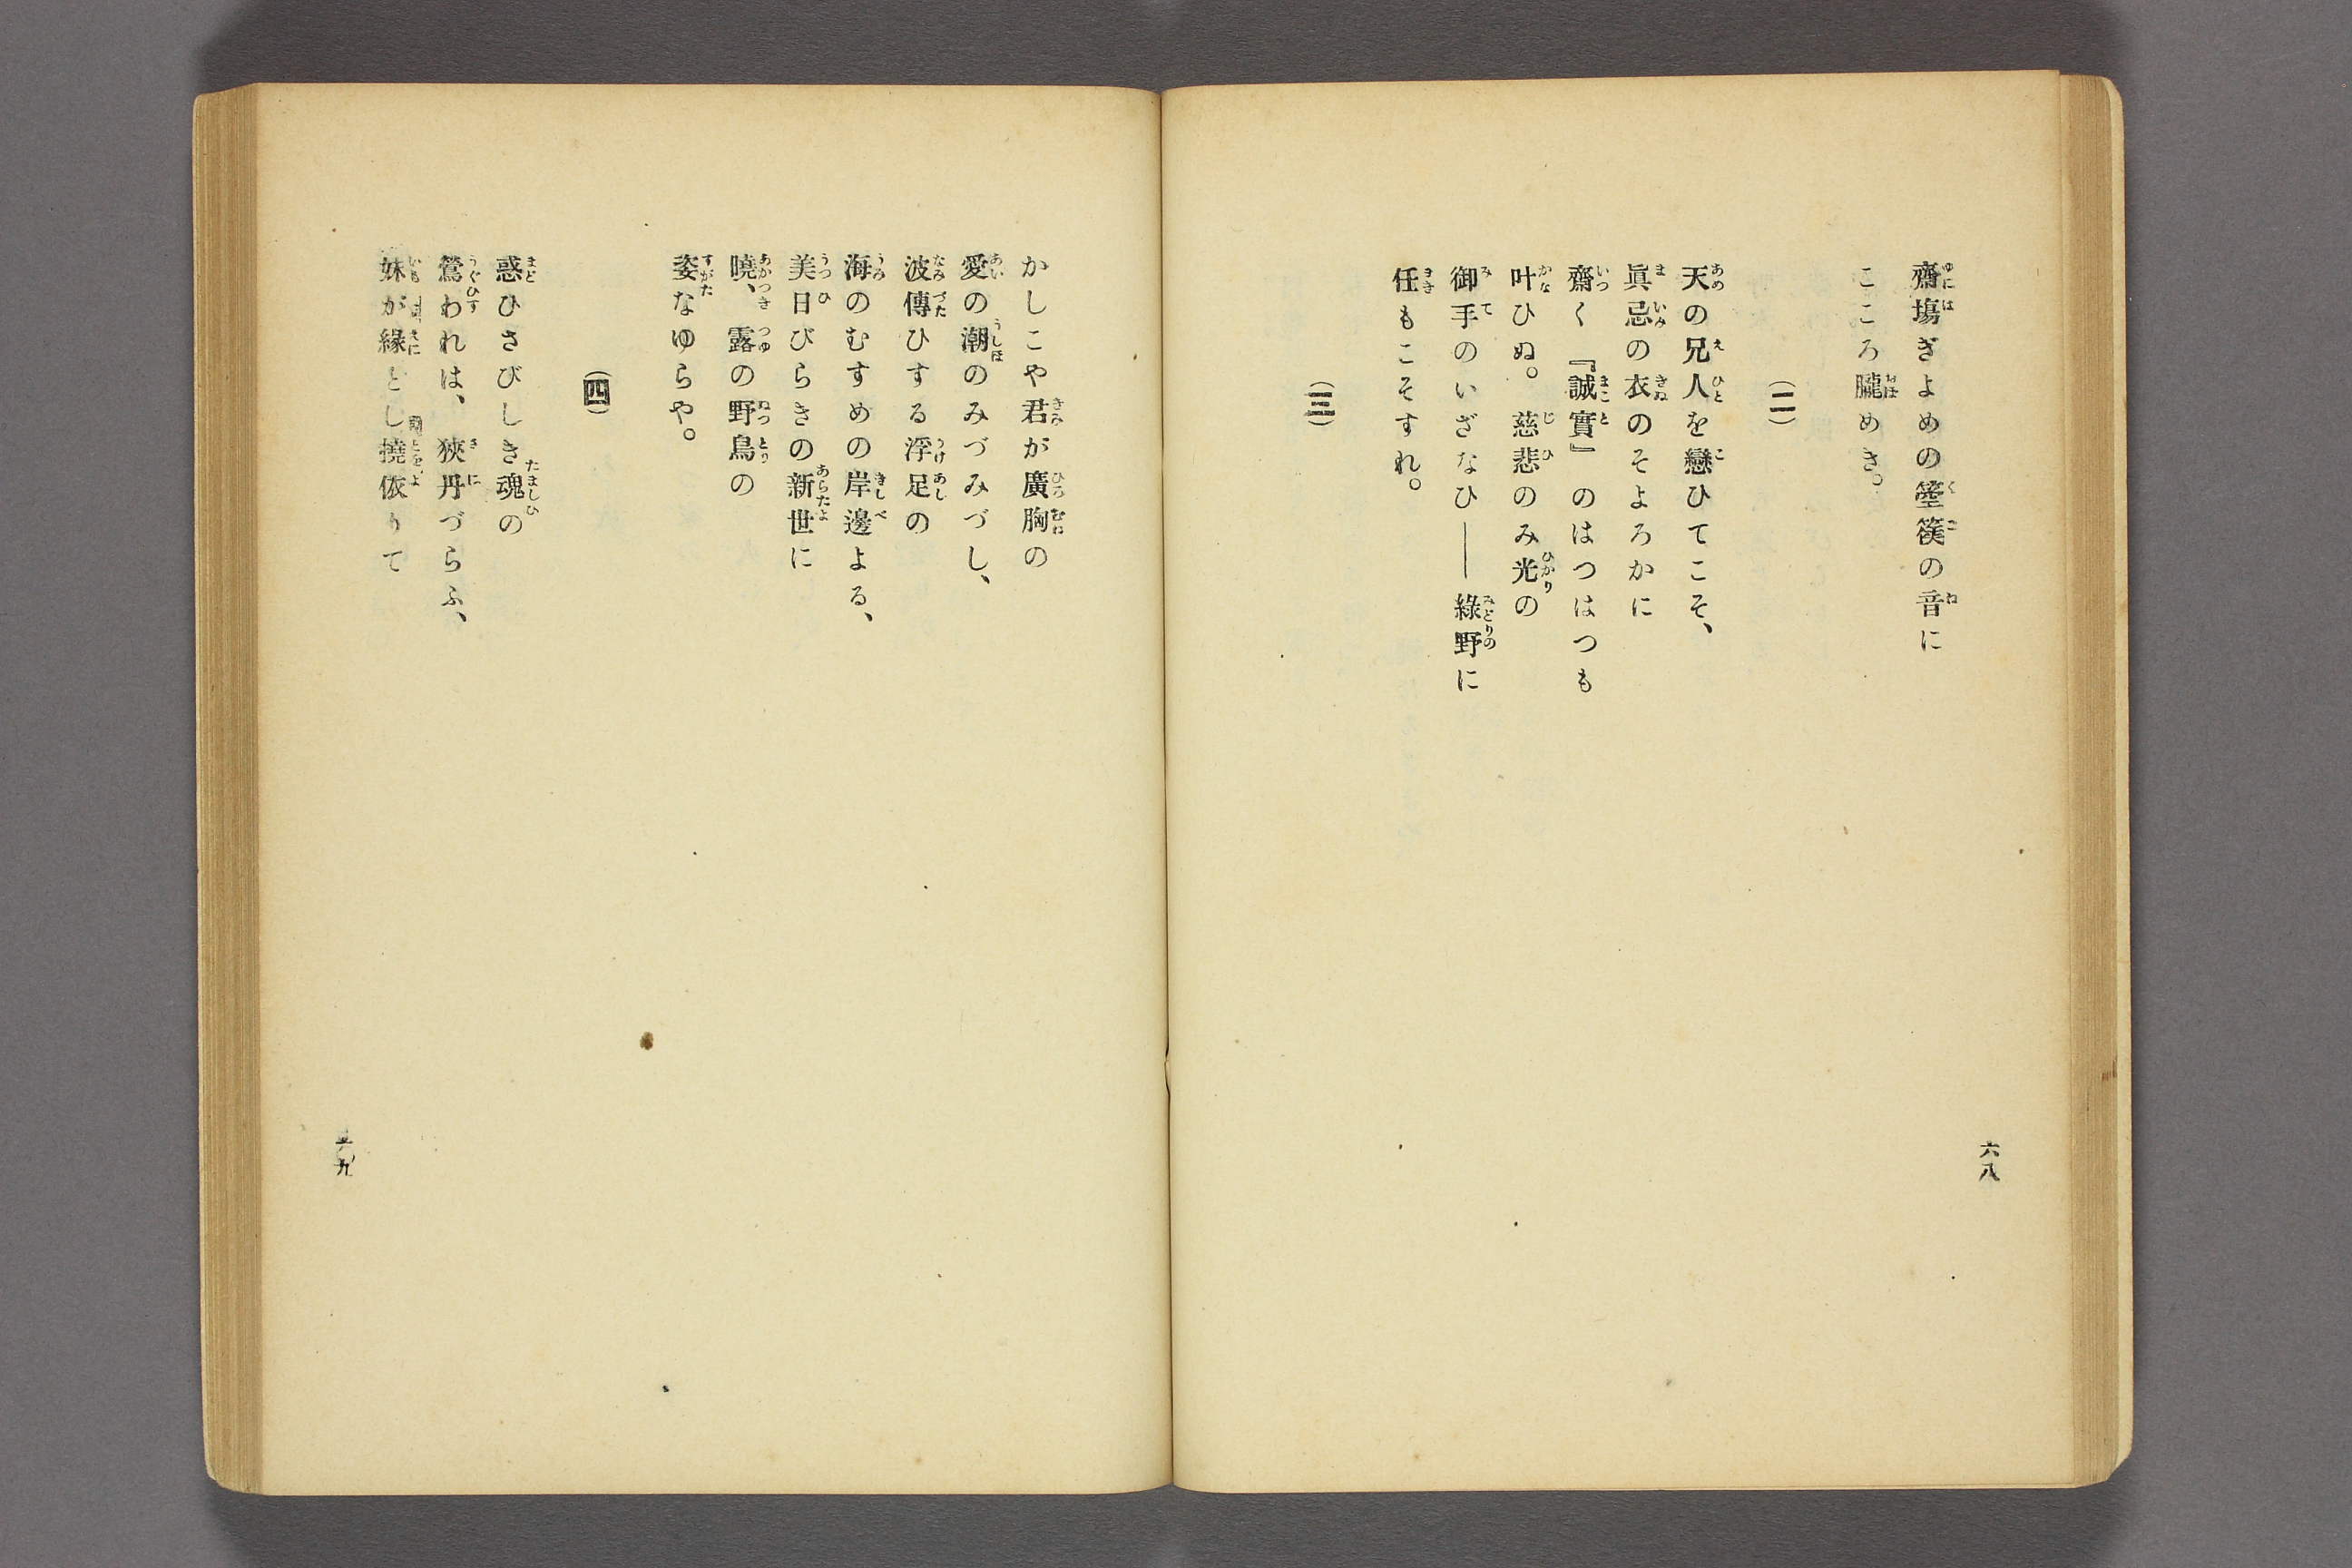 齋塲ぎよめの箜篌の音に
こころ朧めき。
(二)
天の兄人を戀ひてこそ、
眞忌の衣のそよろかに
齋く『誠實』のはつはつも
叶ひぬ。慈悲のみ光の
御手のいざなひ――綠野に
任もこそすれ。
(三)
六八
かしこや君が廣胸の
愛の潮のみづみづし、
波傳ひする浮足の
海のむすめの岸邊よる、
美日びらきの新世に
曉、露の野鳥の
姿なゆらや。
(四)
惑ひさびしき魂の
鶯われは、狹丹づらふ、
妹が緣とし撓依りて
六九